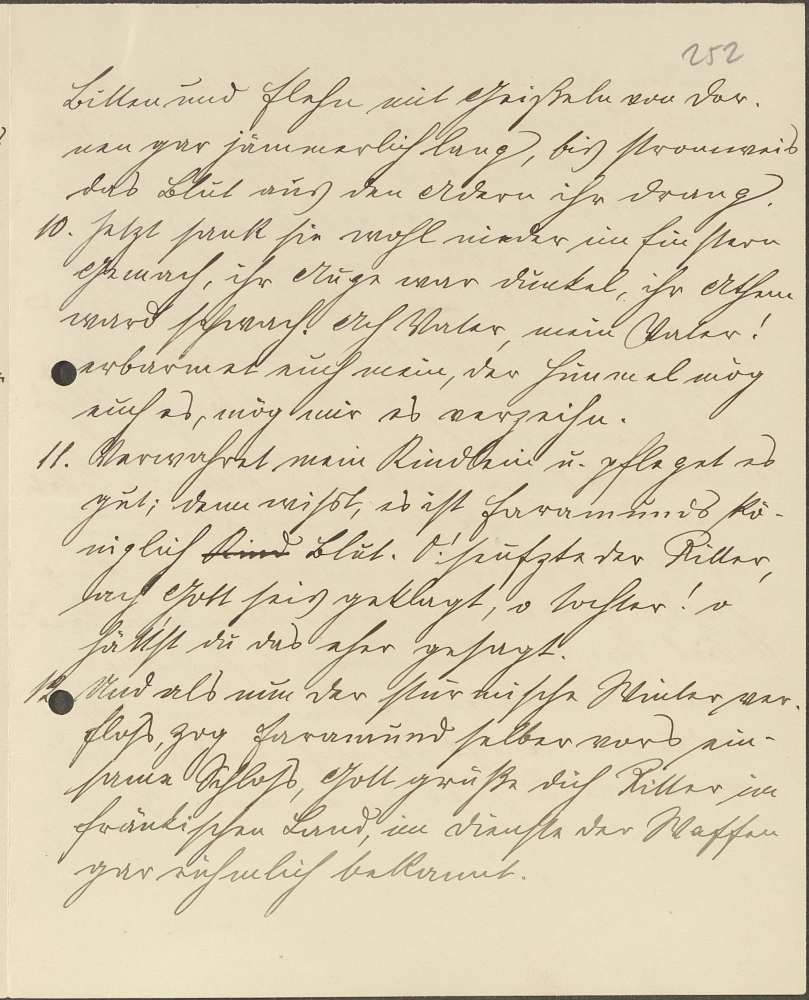 252
Bitten und Flehn mit Geißeln von Dor-
nen gar jämmerlich lang, bis stromweis
das Blut aus den Adern ihr drang.
10. Jetzt sank sie wohl nieder im finstern
Gemach, ihr Auge war dunkel, ihr Athem
ward schwach. Ach Vater, mein Vater!
erbarmet euch mein, der Himmel mög
euch es, mög mir es verzeihn.
11. Verwahret mein Kindlein u. pfleget es
gut; denn wißt, es ist Faramunds kö-
niglich Kind Blut. O! seufzte der Ritter,
ach Gott seis geklagt, o Tochter! o
hättst du das eher gesagt.
12. Und als nun der stürmische Winter ver-
floß, zog Faramund selber vors ein-
same Schloß, Gott grüße dich Ritter im
fränkischen Land, im Dienste der Waffen
gar rühmlich bekannt.